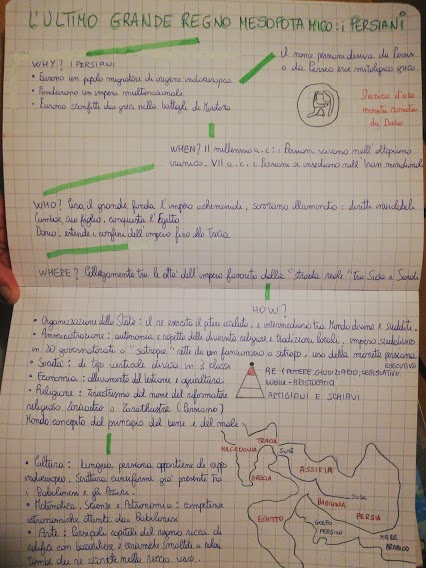 L'ULTIMO GRANDE REGNO MESOPOTAMICO: i PERSIANI
Il nome persiani deriva da Persis
o da Perseo eroe mitologico greco.
WHY? I PERSIANI
• Furono un popolo migratore di origine indoeuropea
• Fondarono un impero multinazionale
• Furono sconfitti dai greci nella battaglia di Maratona
Darico d'oro
moneta coniata
da Dario
WHEN? II millennio a.c.: i Persiani vivono nell'altopiano
iranico. VII a.c.: i Persiani si insediano nell'Iran meridionale
WHO? Ciro, il grande fonda l'impero achemenide, sovrano illuminato = diritti
Cambise, suo figlio, conquista l'Egitto
Dario, estende i confini dell'impero fino alla Tracia
WHERE? Collegamento tra le città dell'impero favorito dalla "strada reale" tra Susa e Sardi
HOW?
• Organizzazione dello Stato: il re esercita il potere assoluto, è intermediario tra Mondo divino e sudditi.
• Amministrazione: autonomia e rispetto delle diversità religiose e tradizioni locali, impero suddiviso
in 20 governatorati o "satrapie" rette da un funzionario o satrapo, uso della moneta persiana
• Società: di tipo verticale divisa in 3 classi
RE (POTERE GIUDIZIARIO, LEGISLATIVO,
ESECUTIVO
NOBILI - ARISTOCRAZIA
ARTIGIANI E SCHIAVI
• Economia: allevamento del bestiame e agricoltura
• Religione: zoroastrismo dal nome del riformatore
religioso Zoroastro o Zarathustra (Persiano)
Mondo concepito dal principio del bene e del male
• Cultura: Lingua persiana appartiene al ceppo
indoeuropeo. Scrittura cuneiforme già presente tra
i Babilonesi e gli Assiri.
• Matematica, Scienze e Astronomia: competenze
astronomiche ottenute dai Babilonesi
• Arte: Persepoli capitale del regno ricca di
edifici con bassorilievi e smalti a colori
tombe dei re scavate nella roccia viva.
TRACIA
MACEDONIA
GRECIA
ASSIRIA
SUSA
BABILONIA
PERSIA
EGITTO
GOLFO
PERSICO
MARE
ARABICO